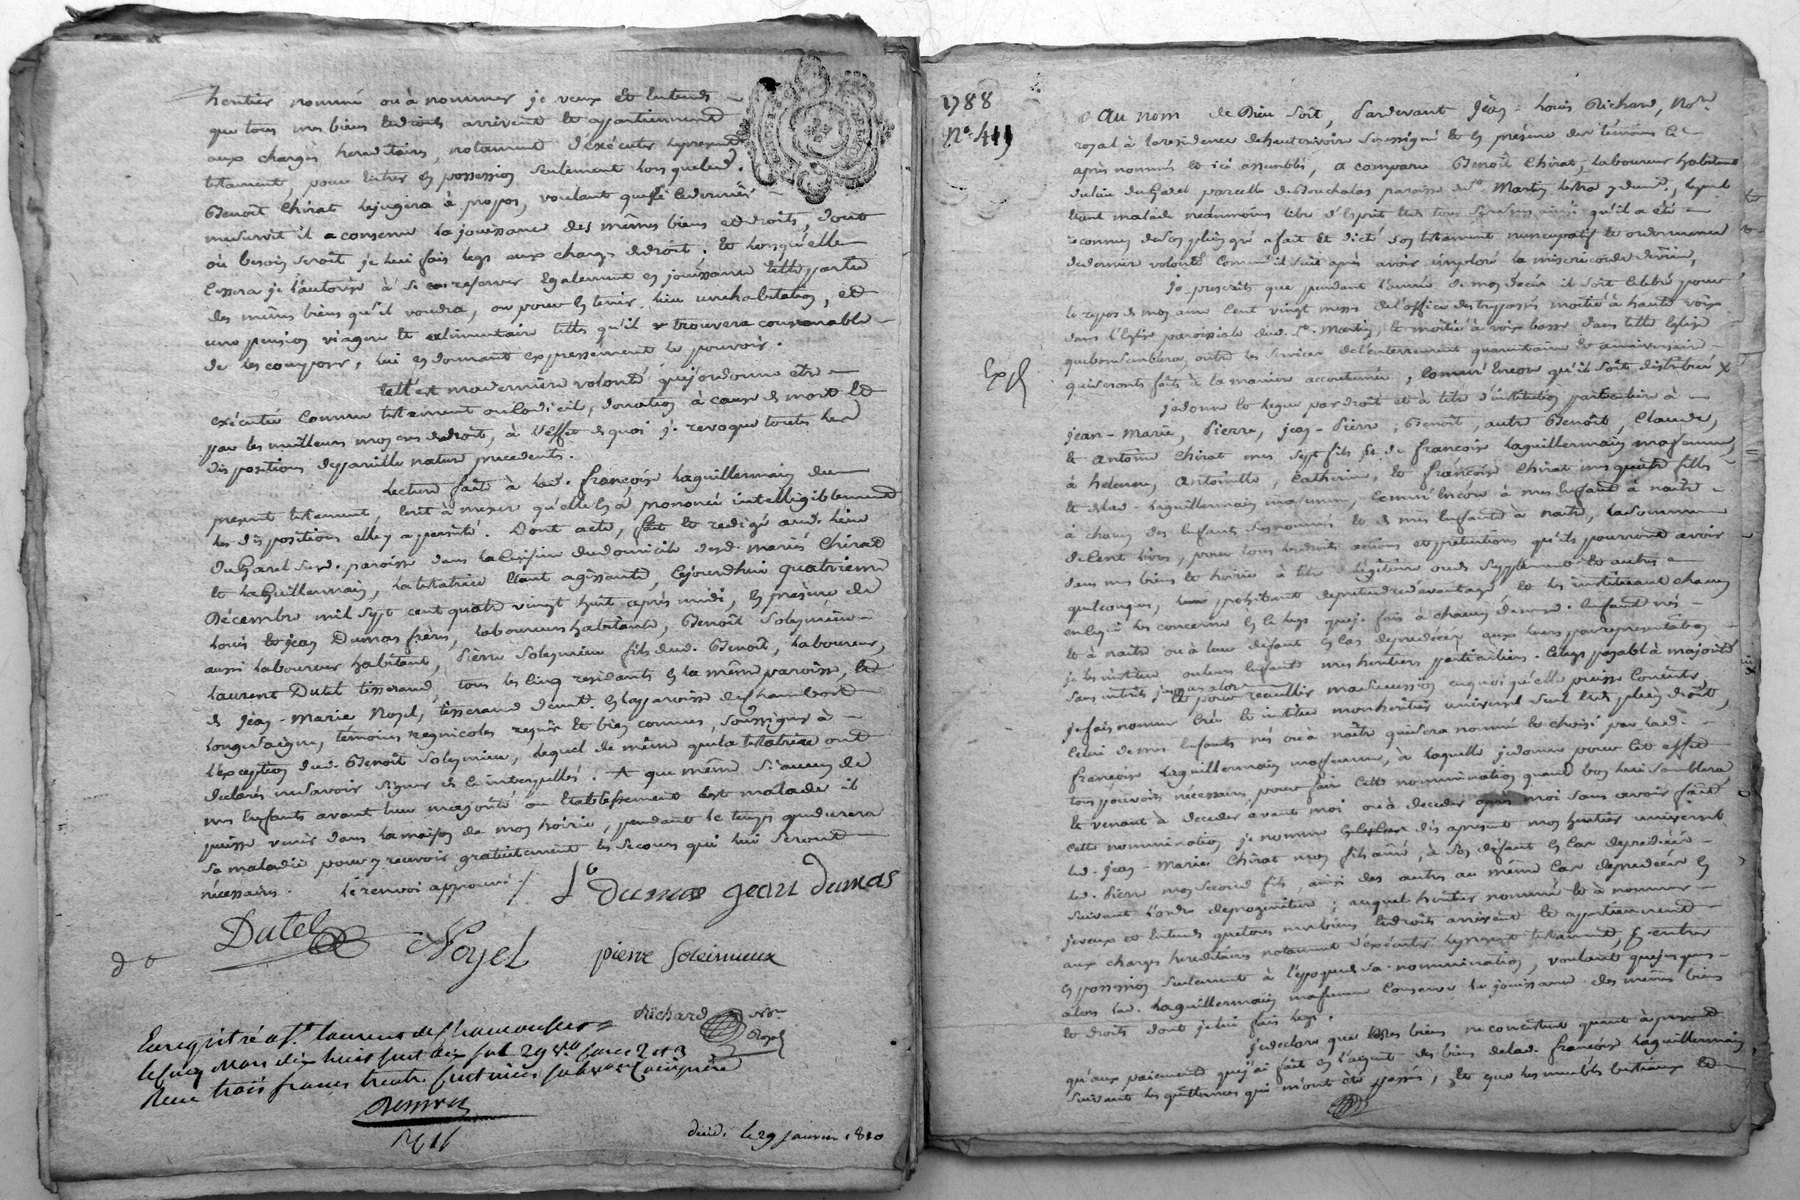 héritier nommé ou à nommer je veux et entends
que tous mes biens et droits arrivent et appartiennent
aux charges hereditaires, notament d'exécuter le present
testament, pour entrer en possession seulement lorsque lad.
Benoît Chirat le jugera à propos, voulant que
il a conservé la jouissance des mêmes biens et droits, dont
où besoin seroit je lui fais legs aux charges de droit; et lorsqu'elle
cessera je l'autorise à se reserver également en jouissance telle partie
des mêmes biens qu'il voudra, ou pour en tenir lieu une habitation, et
une pension viagere et alimentaire telle qu'il trouvera convenable
de les composer, lui en donnant expressement le pouvoir.
telle est ma derniere volonté que j'ordonne etre
exécutée comme testament ou codicil, donation à cause de mort et
par les meilleurs moyens de droit, à l'effet de quoi je revoque toutes
dispositions de pareille nature precedents.
Lecture faite à lad. françoise Laguillermain du
present testament, écrit à mesure qu'elle en a prononcé intelligiblement
les dispositions elle y a persisté. Dont acte, fait et redigé aud. lieu
du Garel susd. paroisse dans la cuisine du domicile desd. mariés Chirat
et Laguillermain, la testatrice étant agissante, cejourdhui quatrieme
Décembre mil sept cent quatre vingt huit après midi, en présence de
Louis et jean Dumas freres, laboureurs habitants, Benoît Soleymieu
aussi laboureur habitant, Pierre Soleymieu fils dud. Benoît, laboureur,
Laurent Dutel tisserand, tous les cinq residants en la même paroisse, et
de jean-Marie Noyel, tisserand demt. en la paroisse de chambost
Longesaigne, temoins regnicoles requis et bien connus, soussignés à
l'exception dud. Benoît Soleymieu, lequel de même que la testatrice ont
declaré ne savoir signer de ce interpellés. A que même si aucun de
mes enfants avant leur majorité ou établissement est malade il
puisse venir dans la maison de mon hoirie, pendant le temps que durera
sa maladie pour y recevoir gratuitement les secours qui lui seront
nécessaires. le renvoi approuvé
Ls Dumas jean Dumas
Dutel Noyel pierre Soleimieux
Richard Nre Royal
Enregistré à St. laurent de chamousset
le cinq Mars dix huit cent dix fol 29 vo cases 2 et 3
Reçu trois francs trente
décéd. le 29 janvier 1810
1788
No. 411
Exp
Au nom de Dieu soit, Pardevant Jean-Louis Richard, Nore.
royal à la residence de hauterivoire soussigné et en présence des témoins ci
après nommés et ici assemblés, a comparu Benoît Chirat, laboureur habitant
du lieu du Garel parcelle de paroisse de St. Martin Lestra y demt., lequel
étant malade néanmoins libre d'esprit et de tous ses sens ainsi qu'il a été
reconnu de son plein gré a fait et dicté son testament nuncupatif et ordonnance
de derniere volonté comme il suit après avoir imploré la misericorde divine,
je prescrits que pendant l'année de mon decés il soit célébré pour
le repos de mon ame cent vingt messes de l'office des trepassés moitié à haute voix
dans l'Eglise paroissiale dud. St. Martin, et moitié à voix basse dans telle Eglise
que bon semblera, outre les services de l'enterrement quarantaine et anniversaire
qui seront faits à la maniere accoutumée, comm'encore qu'il soit distribué
je donne et legue par droit et à titre d'institution particuliere à
jean-Marie, Pierre, jean-Pierre, Benoît, autre Benoît, Claude,
et Antoine Chirat mes sept fils et de françoise Laguillermain ma femme,
à helene, Antoinette, Catherine, et françoise Chirat mes quatre filles
et de lad. Laguillermain ma femme, comm'encore à mes enfants à naître
à chacun des enfants susnommés et de mes enfants à naître, la somme
de cent livres, pour tous les droits actions et pretentions qu'ils pourront avoir
dans mes biens et hoirie à titre de légitime ou de supplement et autres
quelconques, leur prohibant de pretendre davantage, et les instituant chacun
en ce qui les concerne en le legs que je fais à chacun de mesd. enfants nés
et à naître ou à leur défaut en cas de predecez aux leurs par representation
je les institue ou leurs enfants mes heritiers particuliers. Ce legs payable à majorité
sans intérêts jusques alors
Et pour recueillir ma succession en quoi qu'elle puisse consister,
je fais nomme crée et institue mon heritier universel seul et de plein droit,
celui de mes enfants nés ou à naître qui sera nommé et choisi par lad.
françoise Laguillermain ma femme, à laquelle je donne pour cet effet
tous pouvoirs nécessaires pour faire cette nomination quand bon lui semblera,
et venant à deceder avant moi ou à deceder après moi sans avoir fait
cette nomination je nomme dès apresent mon heritier universel
led. jean-Marie Chirat mon fils aîné, à son défaut en cas de predecès
led. Pierre mon second fils ainsi des autres au même cas de predecés en
suivant l'ordre de primogéniture; auquel heritier nommé et à nommer
je veux et entends que tous mes biens et droits arrivent et appartiennent
aux charges hereditaires notament d'exécuter le present testament, et entrer
en possession seulement à l'époque de sa nomination, voulant que jusques
alors lad. Laguillermain ma femme conserve la jouissance des mêmes biens
et droits dont je lui fais legs.
je declare que mes biens ne consistent quant à present
qu'aux paiement que j'ai fait en l'acquit des biens de lad. françoise Laguillermain,
suivant les quittances qui m'ont été passées, et que les meubles bestiaux et